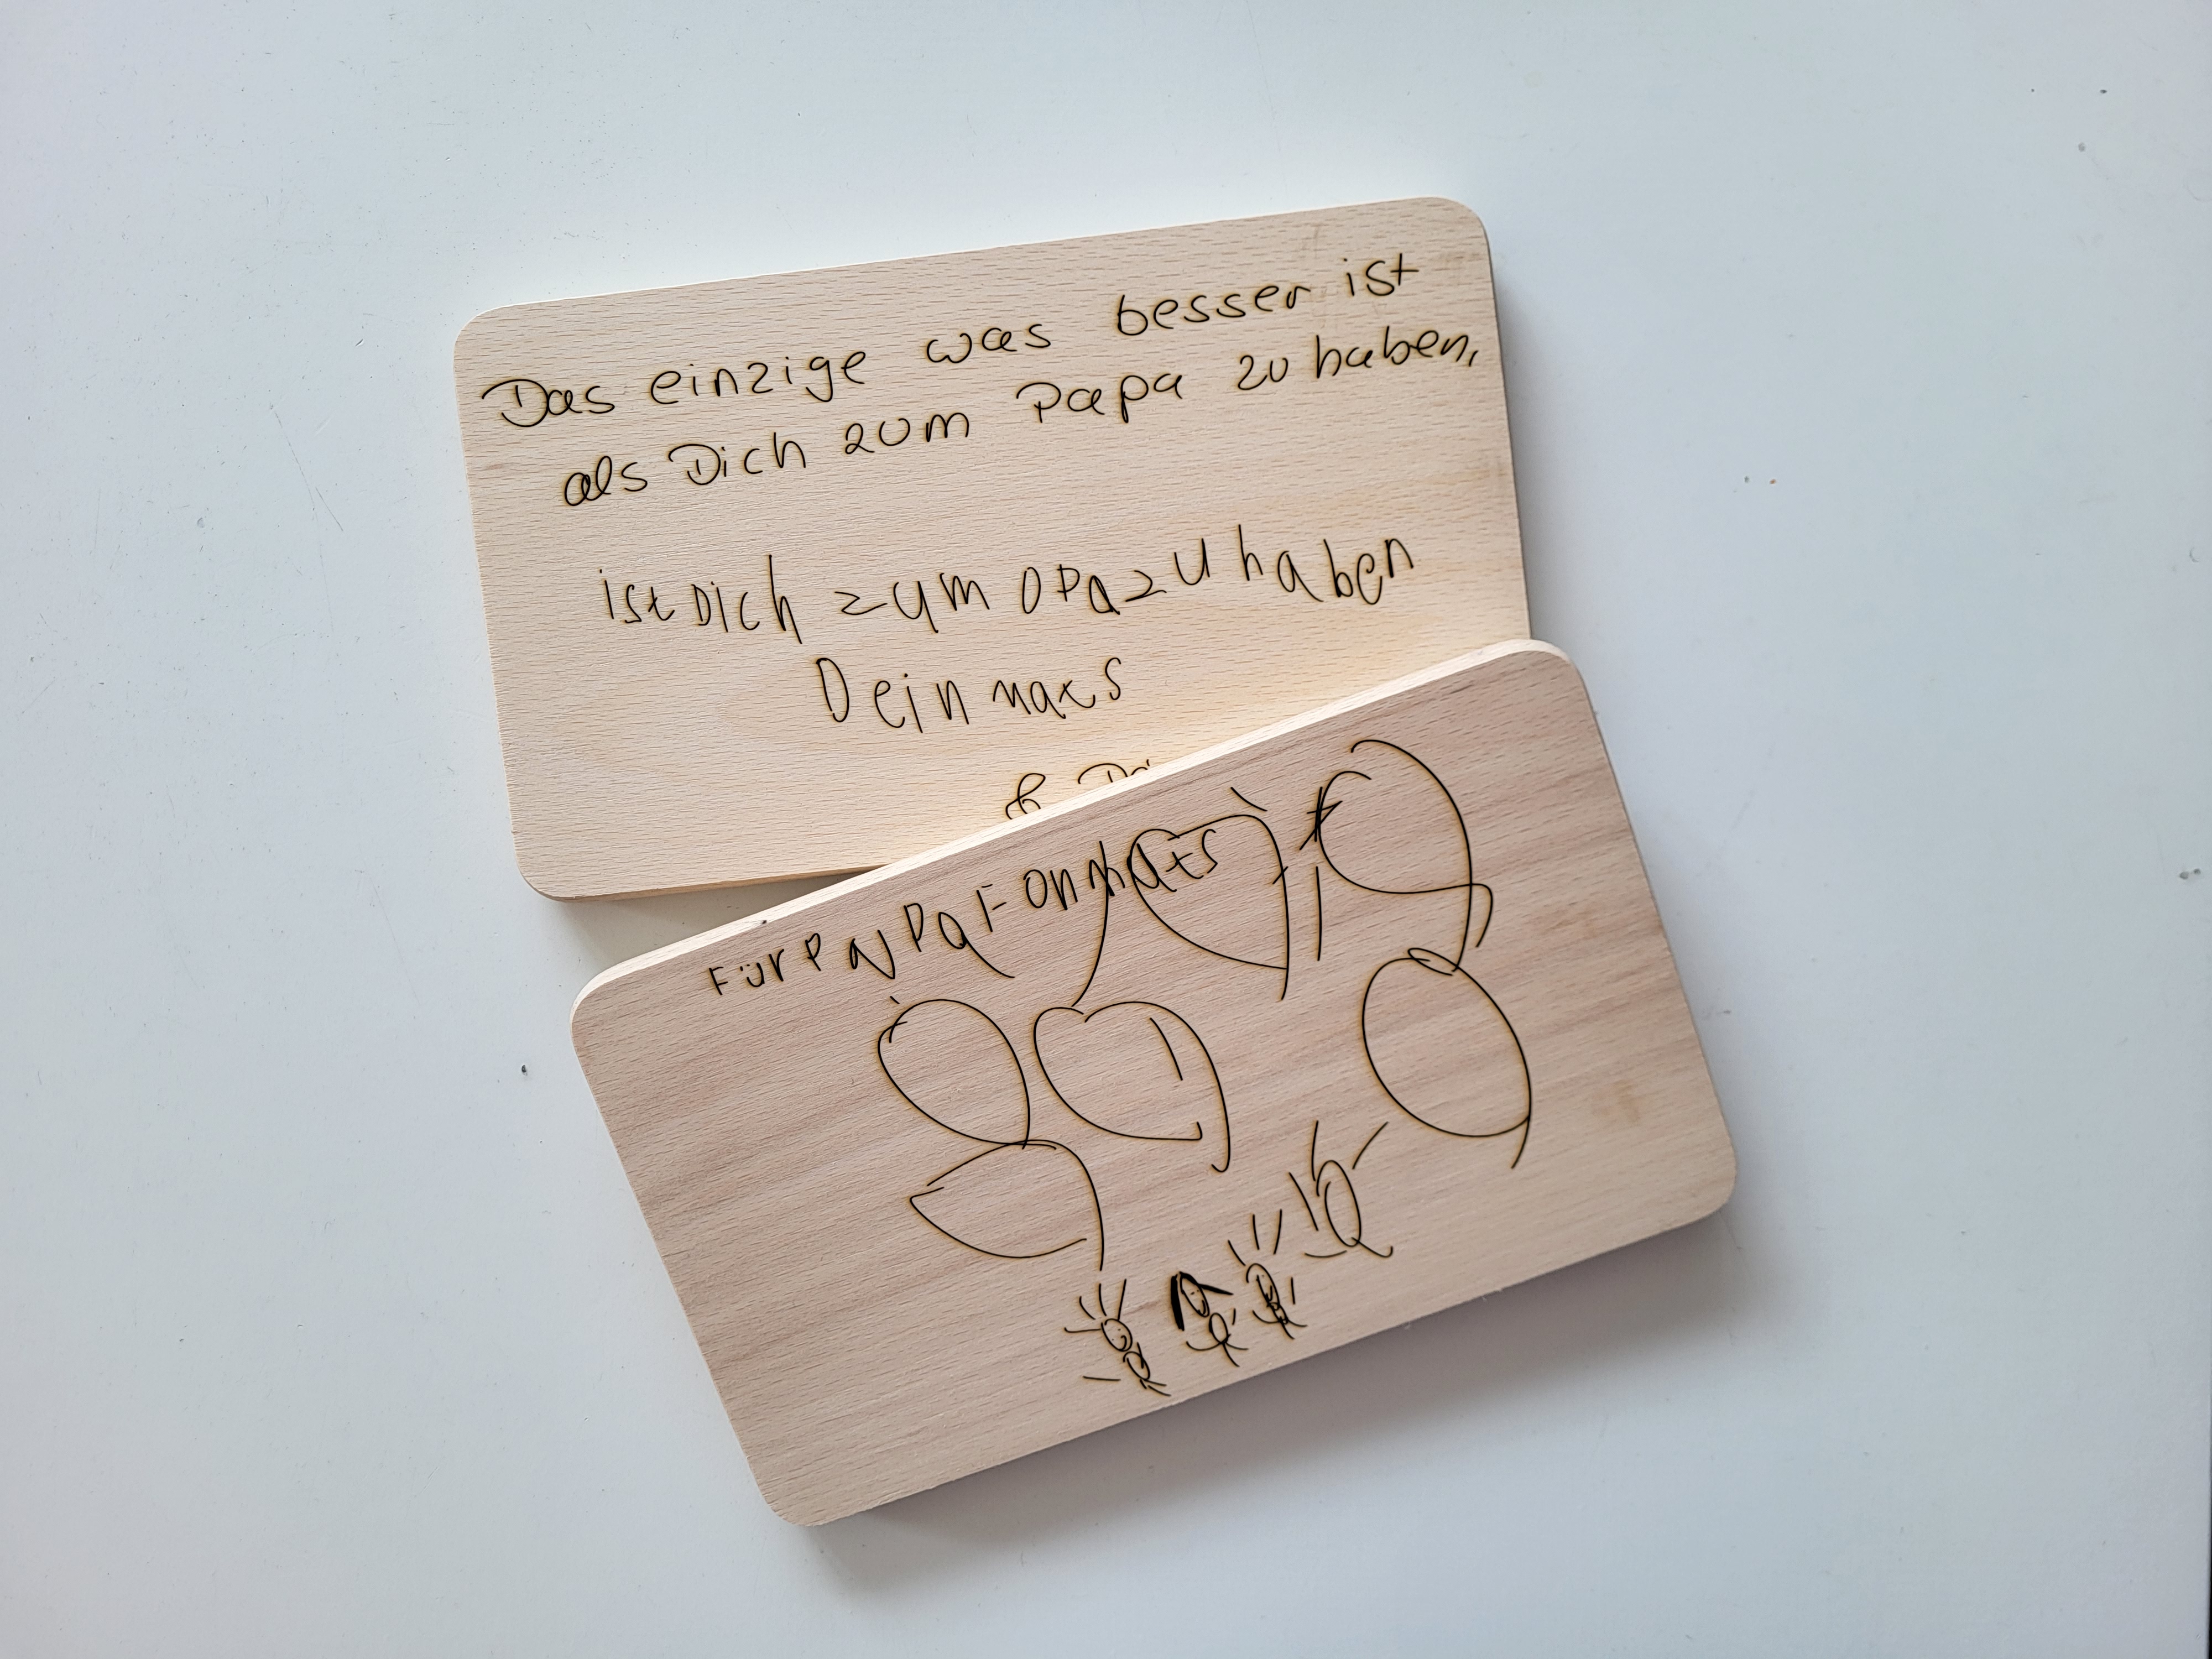 Das einzige was besser ist
als Dich zum Papa zu haben,
ist Dich zum OPa zu haben
Dein mats
&
Für PaPa Fon mats